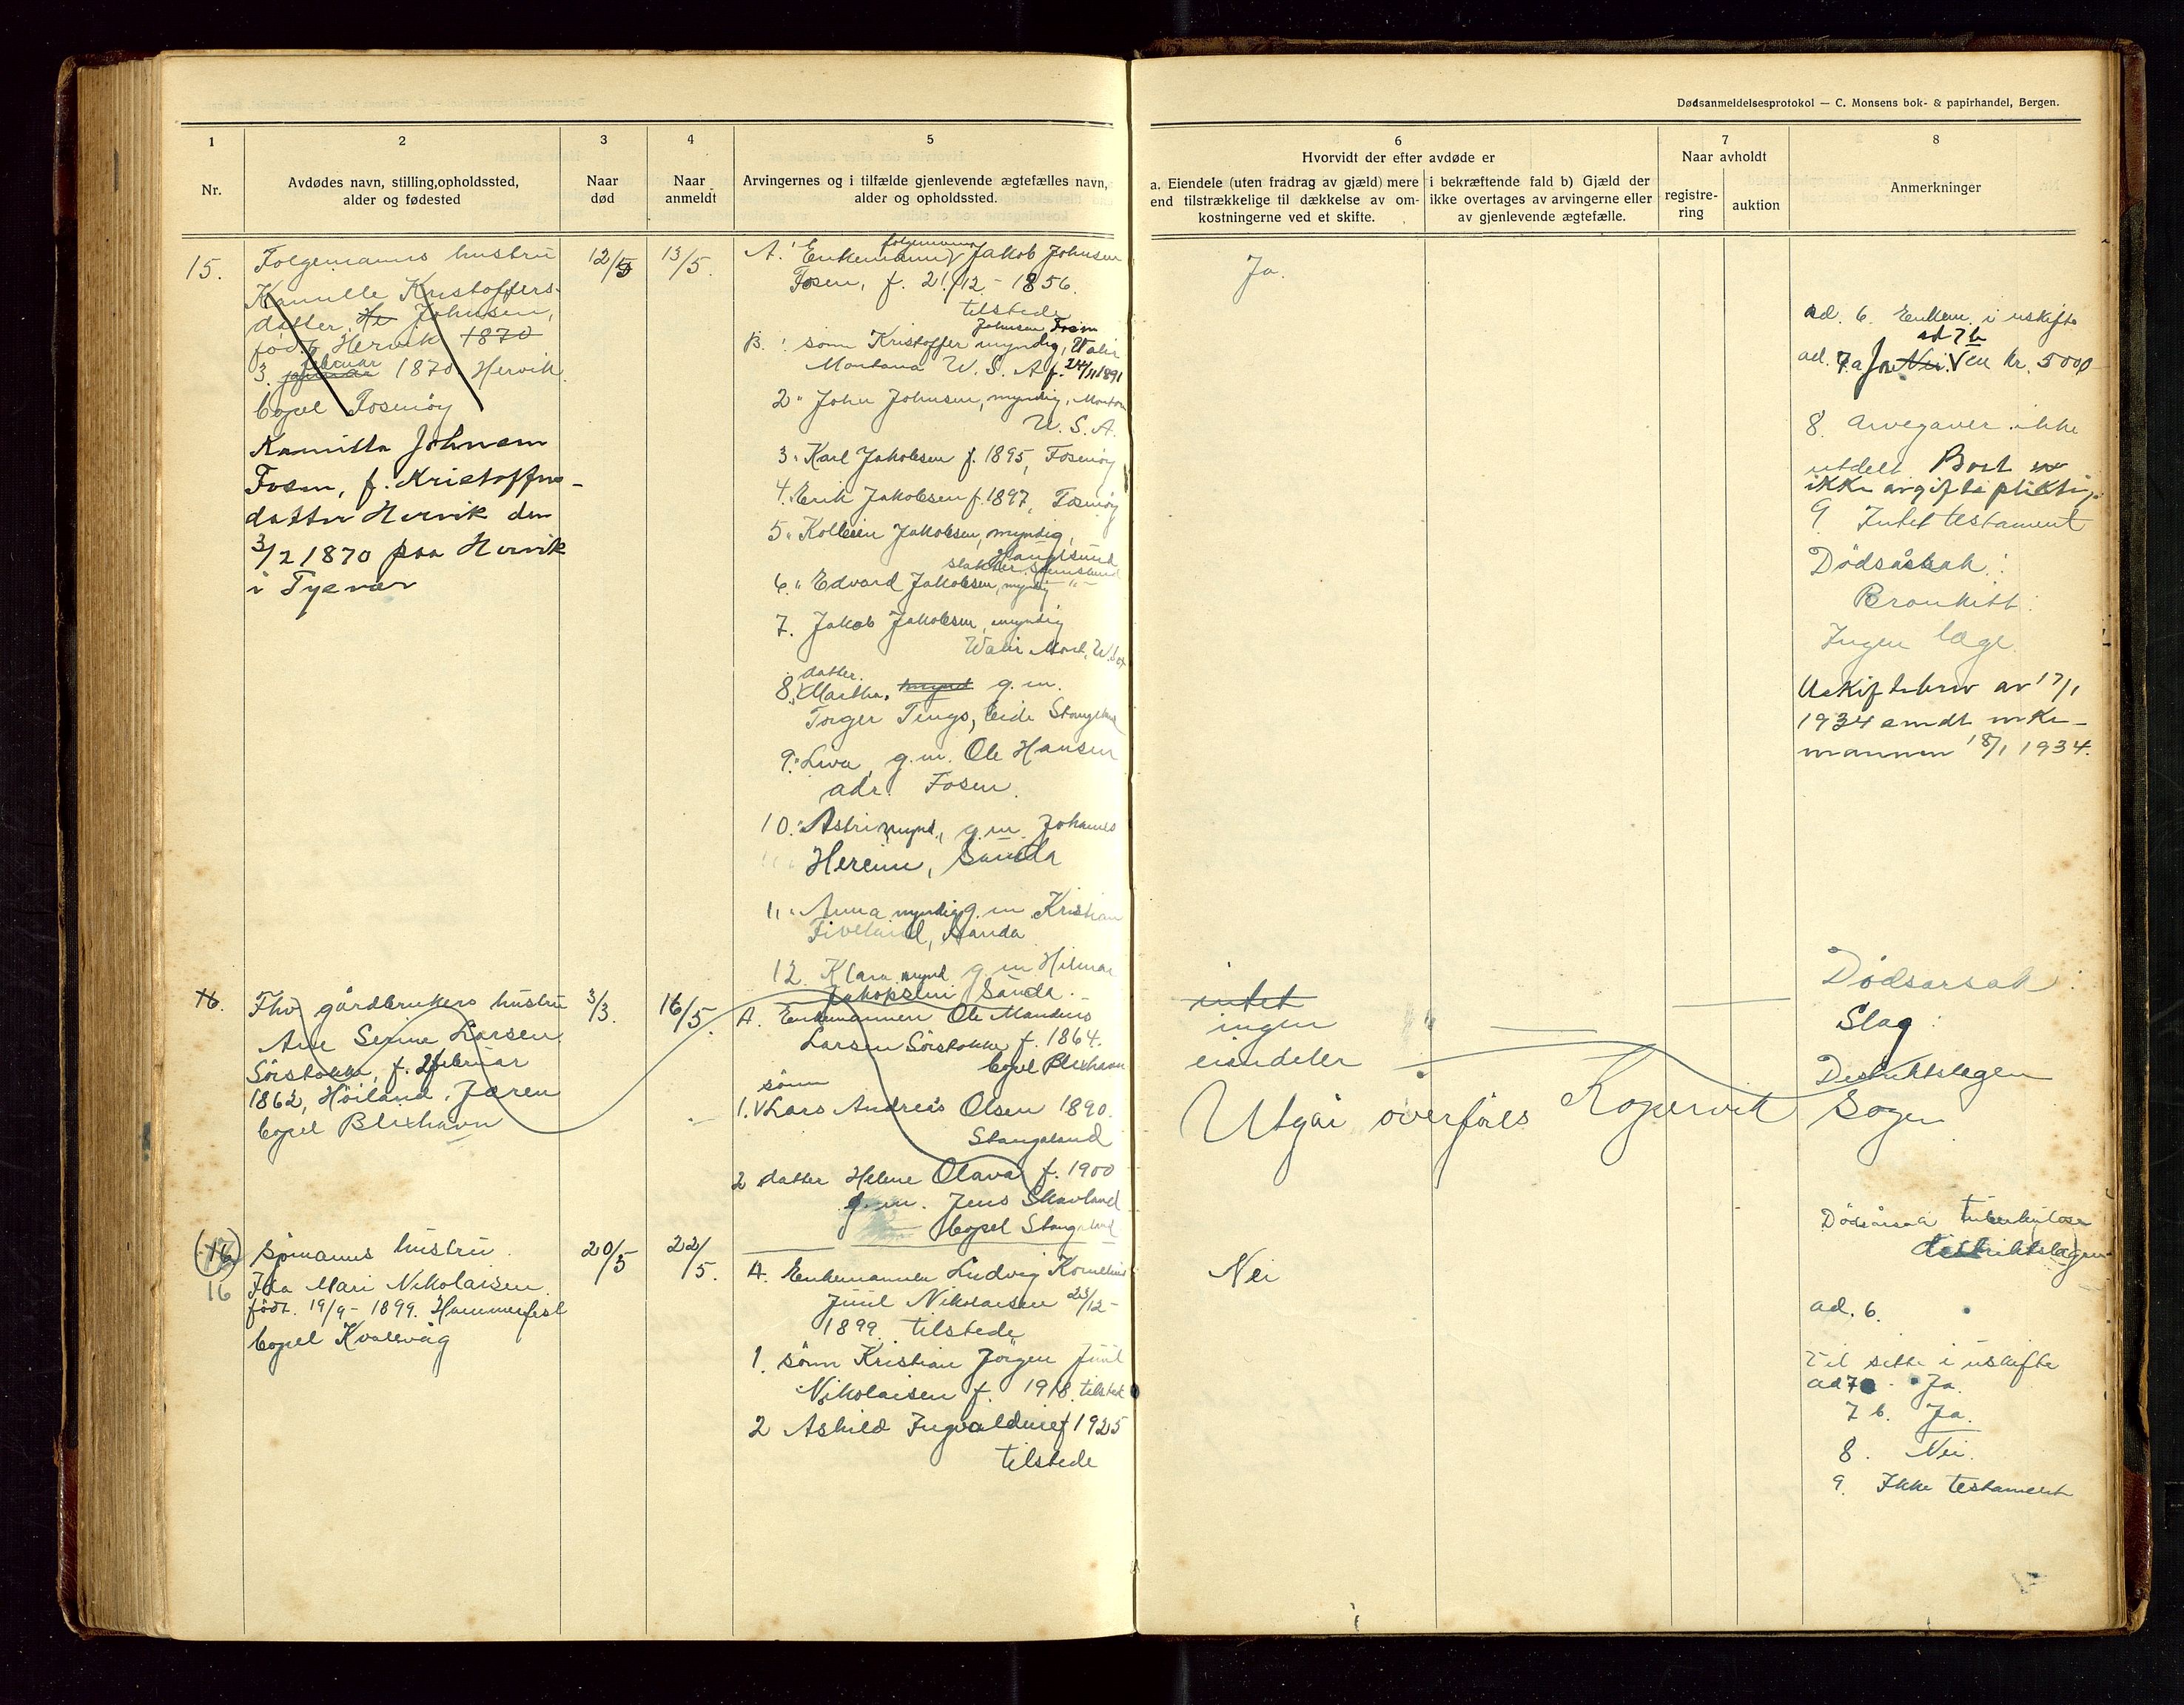 Dødsanmeldelsesprotokol — C. Monsens bok- & papirhandel, Bergen.
1
Nr.
2
Avdødes navn, stilling, opholdssted,
alder og fødested
3
Naar
død
4
Naar
anmeldt
5
Arvingernes og i tilfælde gjenlevende ægtefælles navn,
alder og opholdssted.
6
Hvorvidt der efter avdøde er
a. Eiendele (uten fradrag av gjæld) mere
end tilstrækkelige til dækkelse av om-
kostningerne ved et skifte.
i bekræftende fald b) Gjæld der
ikke overtages av arvingerne eller
av gjenlevende ægtefælle.
7
Naar avholdt
registre-
ring
auktion
8
Anmerkninger
15.
Folgemanns hustru
Kamille Kristoffers-
datter He Johnsen,
født Hervik 1870
3. januar februar 1870 Hervik
bopel Fosenöy
Kamilla Johnsen
Fosen, f. Kristoffers-
datter Hervik den
3/2 1870 paa Hervik
i Tysvær
12/5
13/5.
A. Enkemann folgemann Jakob Johnsen
Fosen, f. 21/12 - 1856.
tilstede
B. 1 sönn Kristoffer Johnsen Fosen myndig,
Montana U. S. A f. 24/11 1891
2 " John Johnsen, myndig,
U. S. A.
3 " Karl Jakobsen f. 1895, Fosenöy
4 " Erik Jakobsen f. 1897, Fosenöy
5 " Jakobsen, myndig,
Haugesund
6. " Edvard Jakobsen, myndig — " —
7. Jakob Jakobsen, myndig
8. datter Martha, mynd g. m.
Torger
9. " g. m. Ole Hansen
adr. Fosen.
10. " Astri mynd., g. m. Johannes
Hereim, Sanda
11. " Anna myndig g. m. Kristian
Fiveland, Sanda
12. Klara mynd g. m. Hilmar
Jakobsen Sanda.
Ja.
ad. 6. Enkem. i uskifte
ad 7 b
ad. 7. a Ja Nei. Ca kr. 5000
8. Arvegaver ikke
utdelt Bort
ikke avgiftspliktig.
9 Intet testament
Dödsåsak:
Bronkitt.
Ingen læge.
Uskiftebrev av 17/1
1934 sendt enke-
mannen 18/1 1934.
16.
Fhv gårdbrukers hustru
Ane Serine Larsen
Sörstokke, f. 2 februar
1862, Höiland, Jæren
bopel Blikshavn
3/3.
16/5.
A. Enkemannen Ole Mandius
Larsen Sörstokke f. 1864.
bopel Blikshavn
1. sönn Lars Andreas Olsen 1890.
Stangaland
2 datter Helene Olava f. 1900
g. m. Jens Skavland
bopel Stangeland
intet
ingen
eiendeler
Utgår overföres Kopervik
Dödsarsak:
Slag.
Distriktslegen
Sogen
(16)
16
Sömanns hustru.
Ida Mari Nikolaisen.
födt. 19/9 - 1899. Hammerfest
bopel Kvalevåg
20/5
22/5.
A. Enkemannen Ludvig Kornelius
Juul Nikolaisen 23/12 -
1899. tilstede
1. sönn Kristian Jörgen Juul
Nikolaisen f. 1918. tilsted
2 Ashild f 1925
tilstede
Nei
Dödsårsak tuberkulose
distriktslægen
ad. 6.
Vil sitte i uskifte
ad 7 a - Ja.
7 b. Ja.
8. Nei.
9. Ikke testament